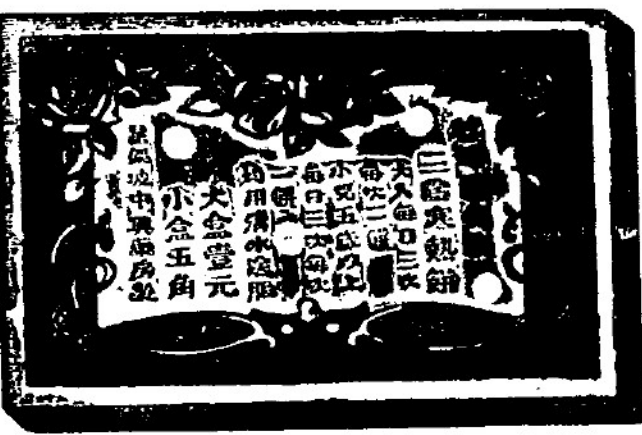 三陰寒熱餅
大人每日三次
每次二餅
小兒五歲以上
每日三次每次
一餅
均用清水送服
大盒壹元
小盒五角
坡中興藥房